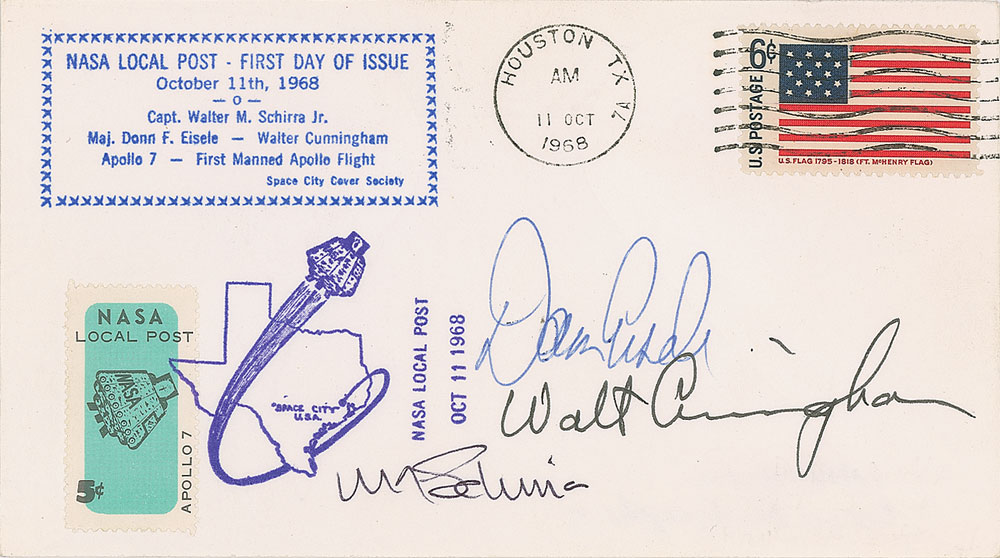 NASA LOCAL POST - FIRST DAY OF ISSUE
October 11th, 1968
— O —
Capt. Walter M. Schirra Jr.
Maj. Donn F. Eisele — Walter Cunningham
Apollo 7 — First Manned Apollo Flight
Space City Cover Society
HOUSTON TX
AM
11 OCT
1968
6¢
U.S. POSTAGE
U.S. FLAG 1795-1818 (FT. McHENRY FLAG)
NASA
LOCAL POST
NASA
5¢
APOLLO 7
"SPACE CITY"
U.S.A.
NASA LOCAL POST
OCT 11 1968
Donn Eisele
Walt Cunningham
W M Schirra